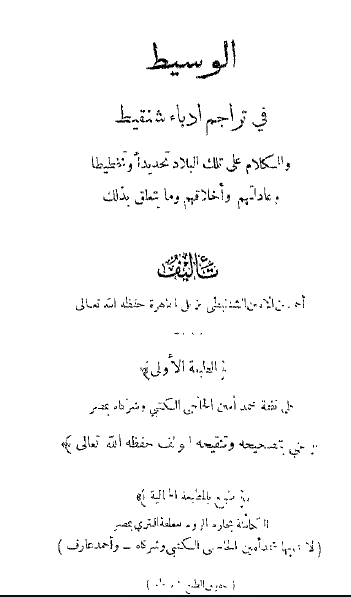 الوسيط
في تراجم ادباء شنقيط
والكلام على تلك البلاد تحديداً وتخطيطا
وعاداتهم وأخلاقهم وما يتعلق بذلك
تأليف
أحمد بن الامين الشنقيطى نزيل القاهرة حفظه الله تعالى
﴿ الطبعة الأولى ﴾
على نفقة محمد أمين الخانجى الكتبي وشركاه بمصر
﴿ عني بتصحيحه وتنقيحه المؤلف حفظه الله تعالى ﴾
﴿ طبع بالمطبعة الجمالية ﴾
الكائنة بحارة الروم بعطفة التتري بمصر
( لأصحابها محمد أمين الخانجى الكتبي وشركاه – وأحمد عارف )
( حقوق الطبع )